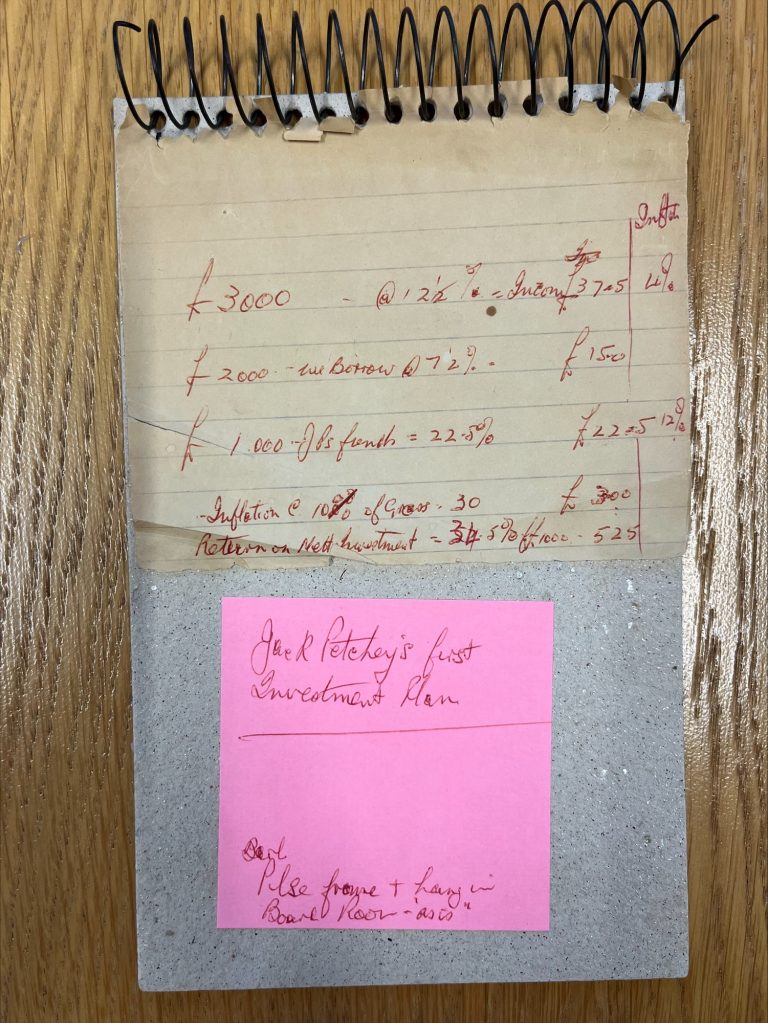 Infltn
£3000 - @ 12½% = Income £375 4%
£2000 - we Borrow @ 7½% - £150
£1.000 - JPs funds = 22.5% £225 12%
- Inflation @ 10% of Gross - 30 £300
Return on Nett Investment = .5% of £1000 - 525
Jack Petchey's first
Investment Plan
Plse frame + hang in
Board Room - "as is"